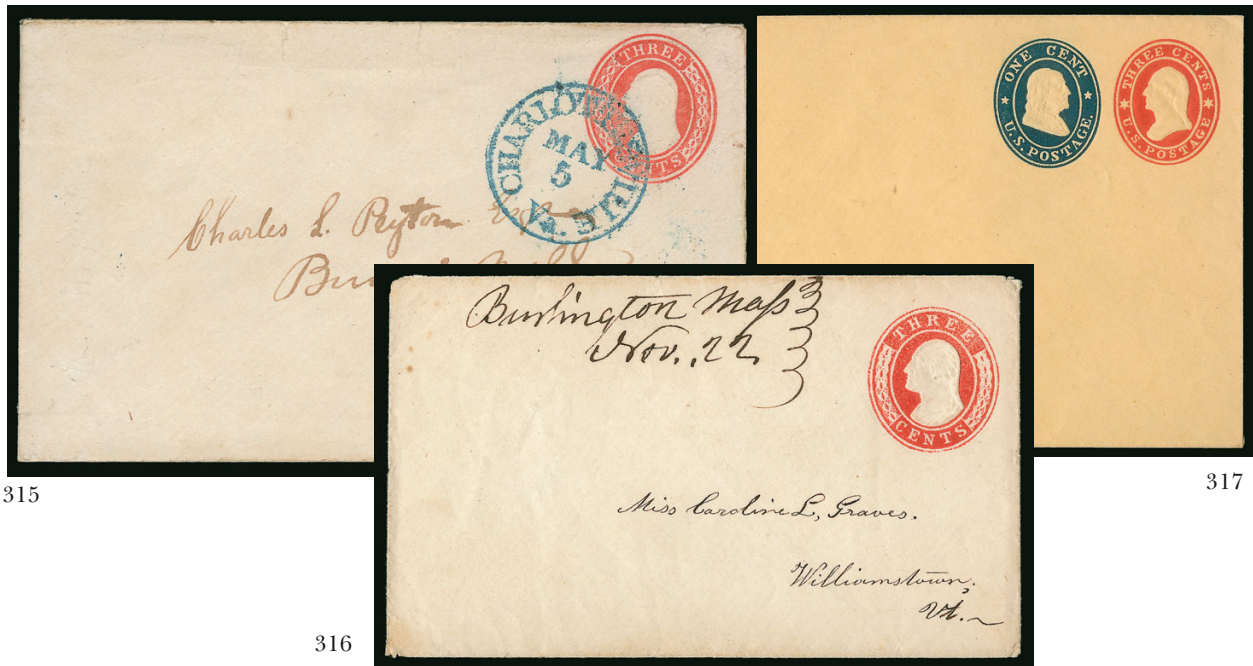 THREE
CENTS
CHARLOTTESVILLE
MAY
5
Va.
Charles L. Peyton Esq
ONE CENT
U.S. POSTAGE.
THREE CENTS
U.S. POSTAGE
Burlington Mass
Nov. 22
THREE
CENTS
Miss Caroline L, Graves.
Williamstown,
Vt.
315
317
316